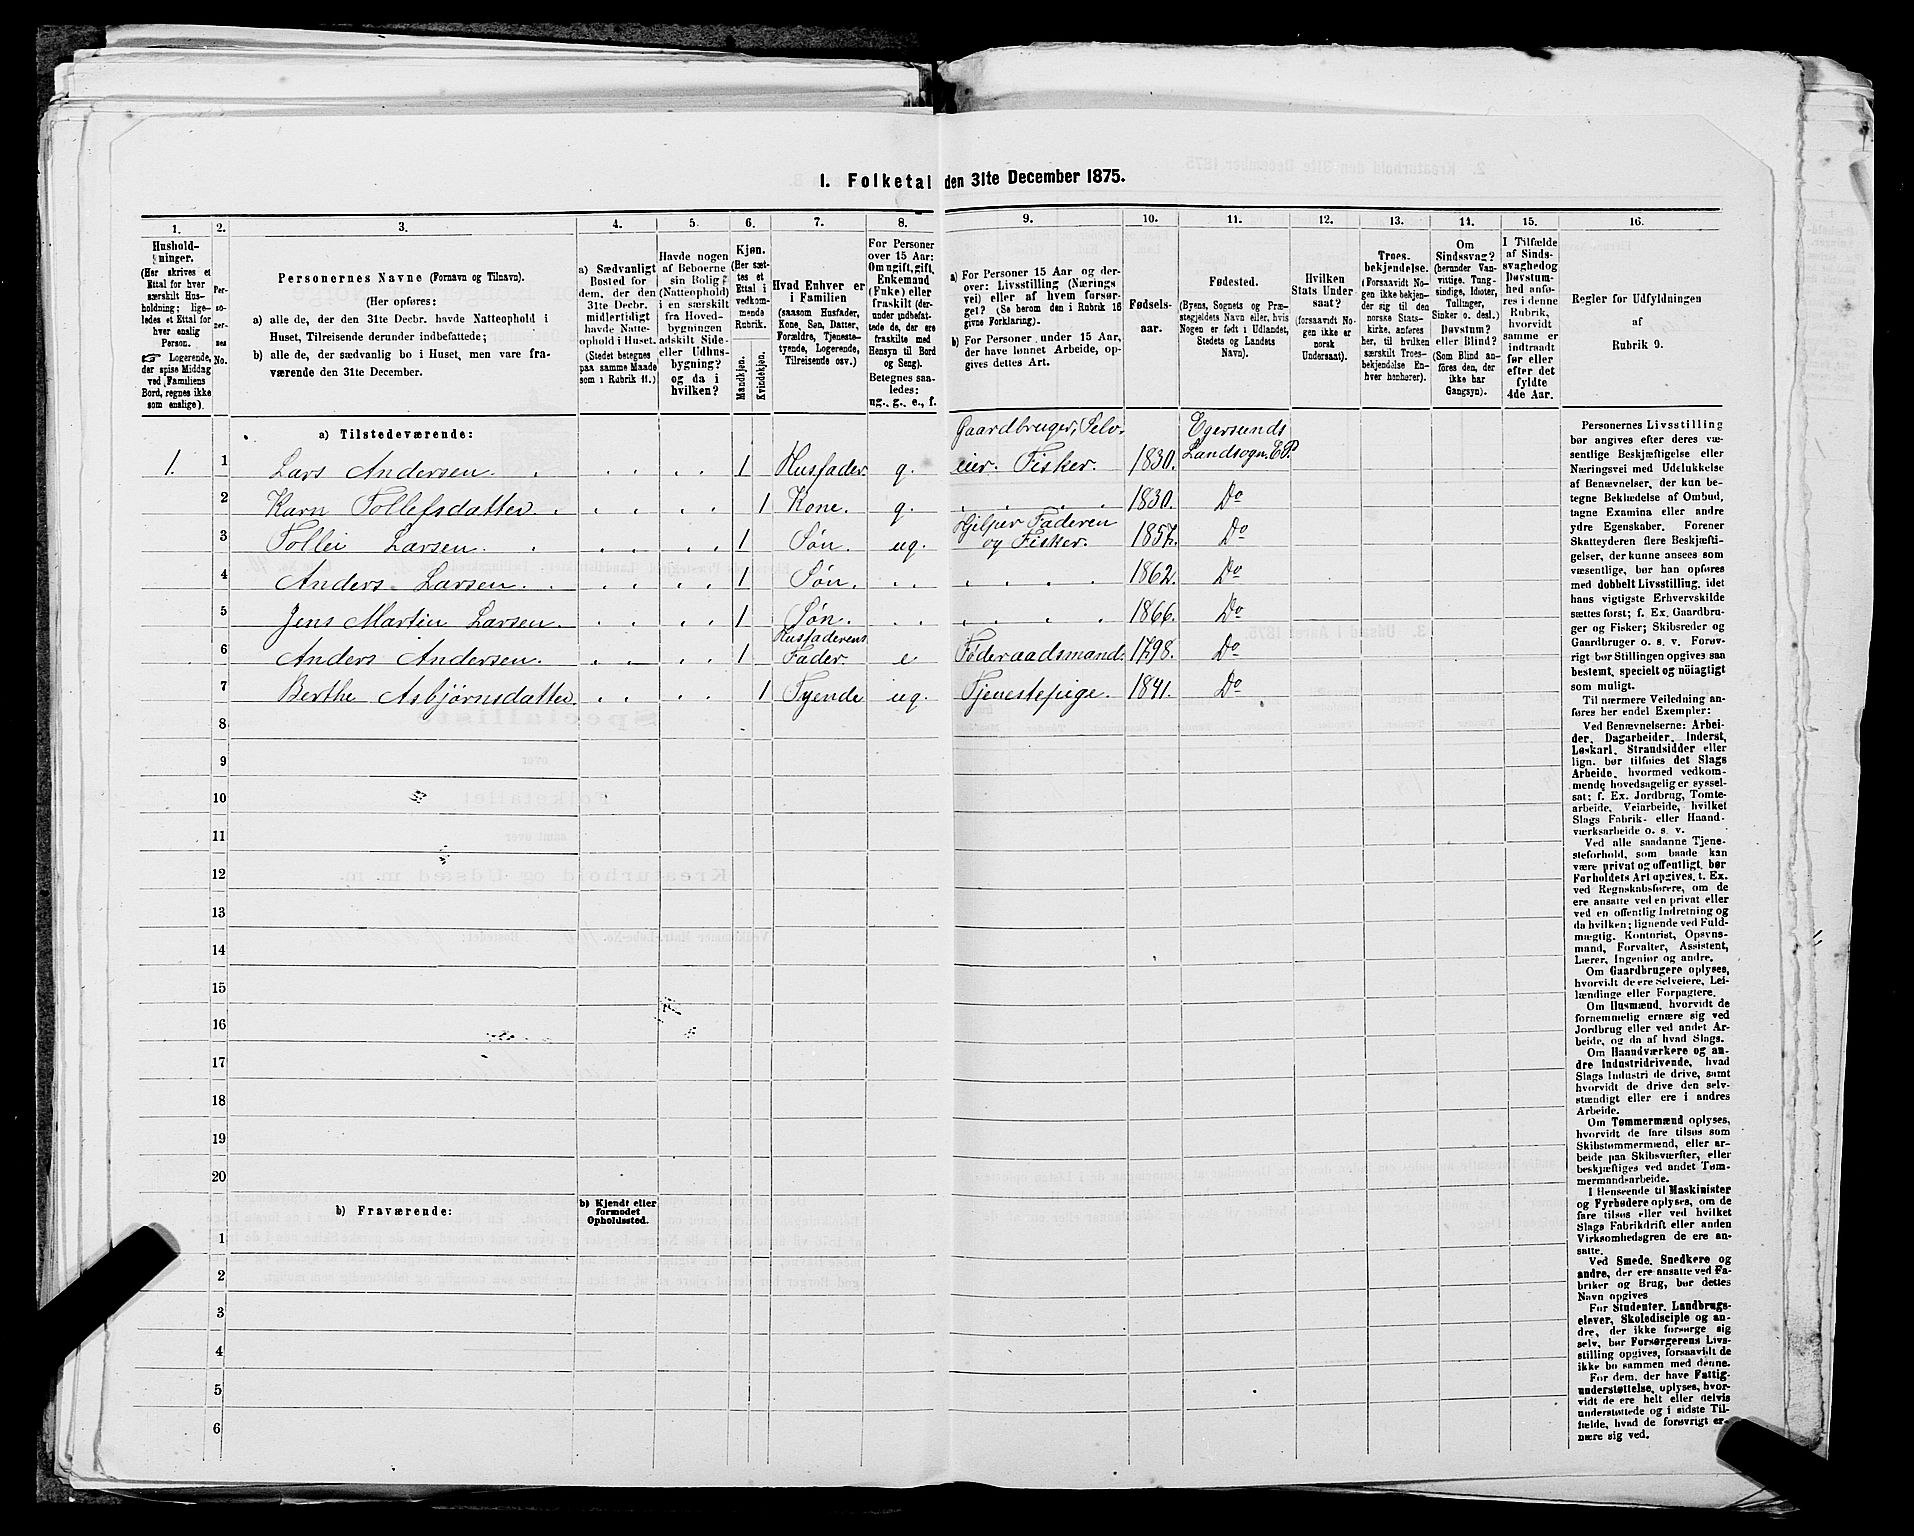 1. Folketal den 31te December 1875.
1. 2. 3. 4. 5. 6. 7. 8. 9. 10. 11. 12. 13. 14. 15. 16.
Hushold-
ninger.
(Her skrives et
Ettal for hver
særskilt Hus-
holdning; lige-
ledes et Ettal for
hver enslig
Person.
☞ Logerende,
der spise Middag
ved Familiens
Bord, regnes ikke
som enslige).
Per-
so-
ner-
nes
No.
Personernes Navne (Fornavn og Tilnavn).
(Her opføres:
a) alle de, der den 31te Decbr. havde Natteophold i
Huset, Tilreisende derunder indbefattede;
b) alle de, der sædvanlig bo i Huset, men vare fra-
værende den 31te December.
a) Sædvanligt
Bosted for
dem, der den
31te Decbr.
midlertidigt
havde Natte-
ophold i Huset.
(Stedet betegnes
paa samme Maade
som i Rubrik 11.)
Havde nogen
af Beboerne
sin Bolig
(Natteophold)
i en særskilt
fra Hoved-
bygningen
adskilt Side-
eller Udhus-
bygning?
og da i
hvilken?
Kjøn.
(Her sæt-
tes et
Ettal i
vedkom-
mende
Rubrik.
Mandkjøn.
Kvindekjøn.
Hvad Enhver er
i Familien
(saasom Husfader,
Kone, Søn, Datter,
Forældre, Tjeneste-
tyende, Logerende,
Tilreisende osv.)
For Personer
over 15 Aar:
Om ugift, gift,
Enkemand
(Enke) eller
fraskilt (der-
under indbefat-
tede de, der ere
fraskilte med
Hensyn til Bord
og Seng).
Betegnes saa-
ledes:
ug., g., e., f.
a) For Personer 15 Aar og der-
over: Livsstilling (Nærings-
vei) eller af hvem forsør-
get? (Se herom den i Rubrik 16
givne Forklaring).
b) For Personer under 15 Aar,
der have lønnet Arbeide, op-
gives dettes Art.
Fødsels-
aar.
Fødested.
(Byens, Sognets og Præ-
stegjeldets Navn eller, hvis
Nogen er født i Udlandet,
Stedets og Landets
Navn).
Hvilken
Stats Under-
saat?
(forsaavidt No-
gen ikke er
norsk
Undersaat).
Troes-
bekjendelse.
(Forsaavidt No-
gen ikke bekjen-
der sig til den
norske Stats-
kirke, anføres
her, til hvilken
særskilt Troes-
bekjendelse En-
hver henhører).
Om
Sindssvag?
(herunder Van-
vittige, Tung-
sindige, Idioter,
Tullinger,
Sinker o. desl.)
Døvstum?
eller Blind?
(Som Blind an-
føres den, der
ikke har
Gangsyn).
I Tilfælde
af Sinds-
svaghed og
Døvstum-
hed anfø-
res i denne
Rubrik,
hvorvidt
samme er
indtraadt
før eller
efter det
fyldte
4de Aar.
Regler for Udfyldningen
af
Rubrik 9.
a) Tilstedeværende:
1. 1 Lars Andersen. 1 Husfader. g. Gaardbruger, Selv-
eier. Fisker. 1830. Egersunds
Landsogn. E.P.
2 Karn Tollefsdatter. 1 Kone. g. 1830. Do
3 Tollei Larsen. 1 Søn. ug. Hjelper Faderen
og Fisker. 1857. Do
4 Anders Larsen. 1 Søn. 1862. Do
5 Jens Martin Larsen. 1 Søn. 1866. Do
6 Anders Andersen. 1 Husfaderens
Fader. e Føderaadsmand. 1798. Do
7 Berthe Asbjørnsdatter 1 Tyende ug. Tjenestepige. 1841. Do
8
9
10
11
12
13
14
15
16
17
18
19
20
b) Fraværende:
b) Kjendt eller
formodet
Opholdssted.
1
2
3
4
5
6
Personernes Livsstilling
bør angives efter deres væ-
sentlige Beskjæftigelse eller
Næringsvei med Udelukkelse
af Benævnelser, der kun be-
tegne Beklædelse af Ombud,
tagne Examina eller andre
ydre Egenskaber. Forener
Skatteyderen flere Beskjæfti-
gelser, der kunne ansees som
væsentlige, bør han opføres
med dobbelt Livsstilling, idet
hans vigtigste Erhvervskilde
sættes først; f. Ex. Gaardbru-
ger og Fisker; Skibsreder og
Gaardbruger o. s. v. Forøv-
rigt bør Stillingen opgives saa
bestemt, specielt og nöiagtigt
som muligt.
Til nærmere Veiledning an-
føres her endel Exempler:
Ved Benævnelserne: Arbei-
der, Dagarbeider, Inderst,
Løskarl, Strandsidder eller
lign. bør tilføies det Slags
Arbeide, hvormed vedkom-
mende hovedsagelig er syssel-
sat; f. Ex. Jordbrug, Tomte-
arbeide, Veiarbeide, hvilket
Slags Fabrik- eller Haand-
værksarbeide o. s. v.
Ved alle saadanne Tjene-
steforhold, som baade kan
være privat og offentligt, bør
Forholdets Art opgives, t. Ex.
ved Regnskabsførere, om de
ere ansatte ved en privat eller
ved en offentlig Indretning og
da hvilken; lignende ved Fuld-
mægtig, Kontorist, Opsyns-
mand, Forvalter, Assistent,
Lærer, Ingeniør og andre.
Om Gaardbrugere oplyses,
hvorvidt de ere Selveiere, Lei-
lændinge eller Forpagtere.
Om Husmænd, hvorvidt de
fornemmelig ernære sig ved
Jordbrug eller ved andet Ar-
beide, og da af hvad Slags.
Om Haandværkere og an-
dre Industridrivende, hvad
Slags Industri de drive, samt
hvorvidt de drive den selv-
stændigt eller ere i andres
Arbeide.
Om Tømmermænd oplyses,
hvorvidt de fare tilsøs som
Skibstømmermænd, eller ar-
beide paa Skibsværfter, eller
beskjæftiges ved andet Tøm-
mermandsarbeide.
I Henseende til Maskinister
og Fyrbødere oplyses, om de
fare tilsøs eller ved hvilket
Slags Fabrikdrift eller anden
Virksomhedsgren de ere an-
satte.
Ved Smede, Snedkere og
andre, der ere ansatte ved Fa-
briker og Brug, bør dettes
Navn opgives
For Studenter, Landbrugs-
elever, Skoledisciple og an-
dre, der ikke forsørge sig
selv, bør Forsørgerens Livs-
stilling opgives, forsaavidt de
ikke bo sammen med denne.
For dem, der have Fattig-
understøttelse, oplyses, hvor-
vidt de ere helt eller delvis
understøttede og i sidste Til-
fælde, hvad de forøvrigt er-
nære sig ved.